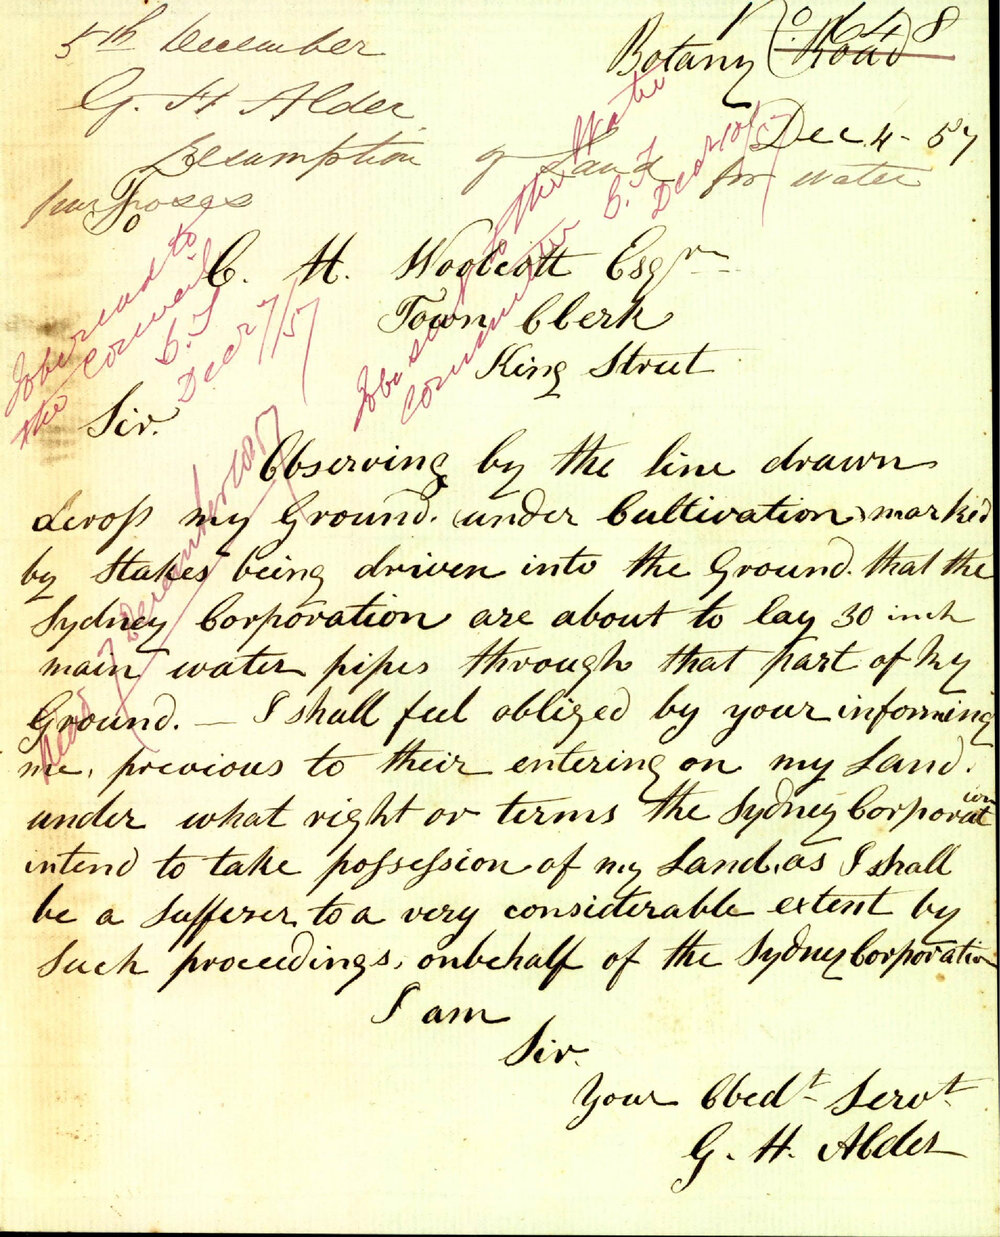 No. 1648
5th December
G. H Alder
Resumption of Land for water
purposes
Botany Road
Dec 4 - 57
To
C. H. Woolcott Esqr
Town Clerk
King Street
Sir.
Observing by the line drawn
Across my Ground. (under Cultivation) marked
by Stakes being driven into the Ground. that the
Sydney Corporation are about to lay 30 inch
main water pipes through that part of My
Ground. — I shall feel obliged by your informing
me, previous to their entering on my Land.
under what right or terms the Sydney Corporation
intend to take possession of my Land, as I shall
be a Sufferer, to a very considerable extent by
Such proceedings, on behalf of the Sydney Corporation
I am
Sir.
Your Obedt Servt
G. H. Alder
To be read to
the Council
Dec 7/57
To be sent to the Water
Committee
Dec 10/57
Read 7 December 1857